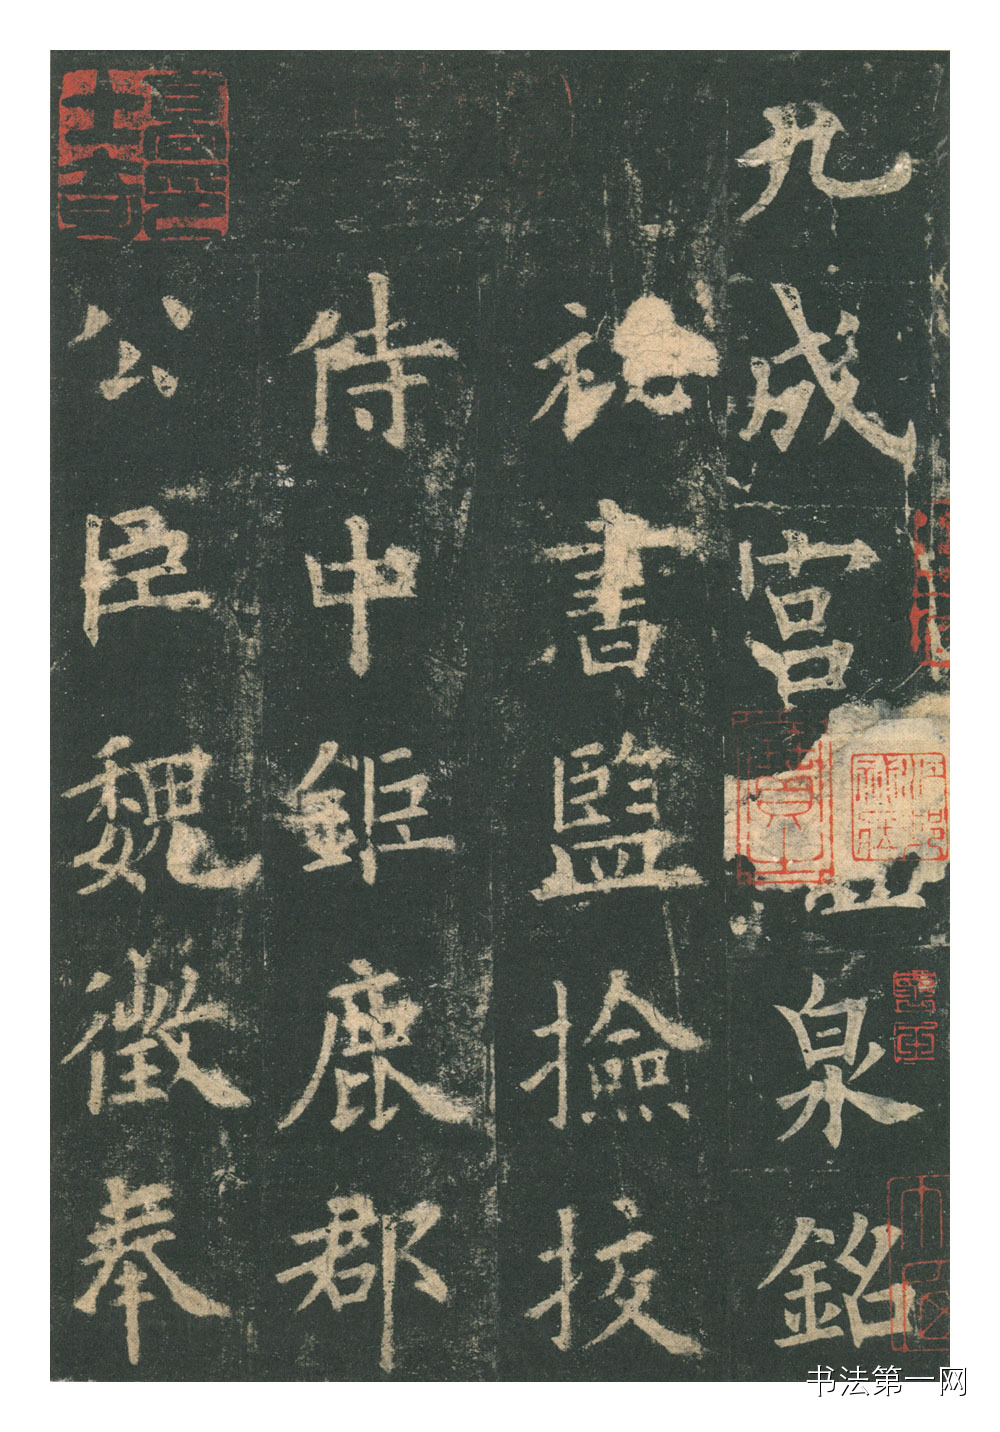 九成宮泉銘
祕書監撿挍
侍中鉅鹿郡
公臣魏徵奉
书法第一网